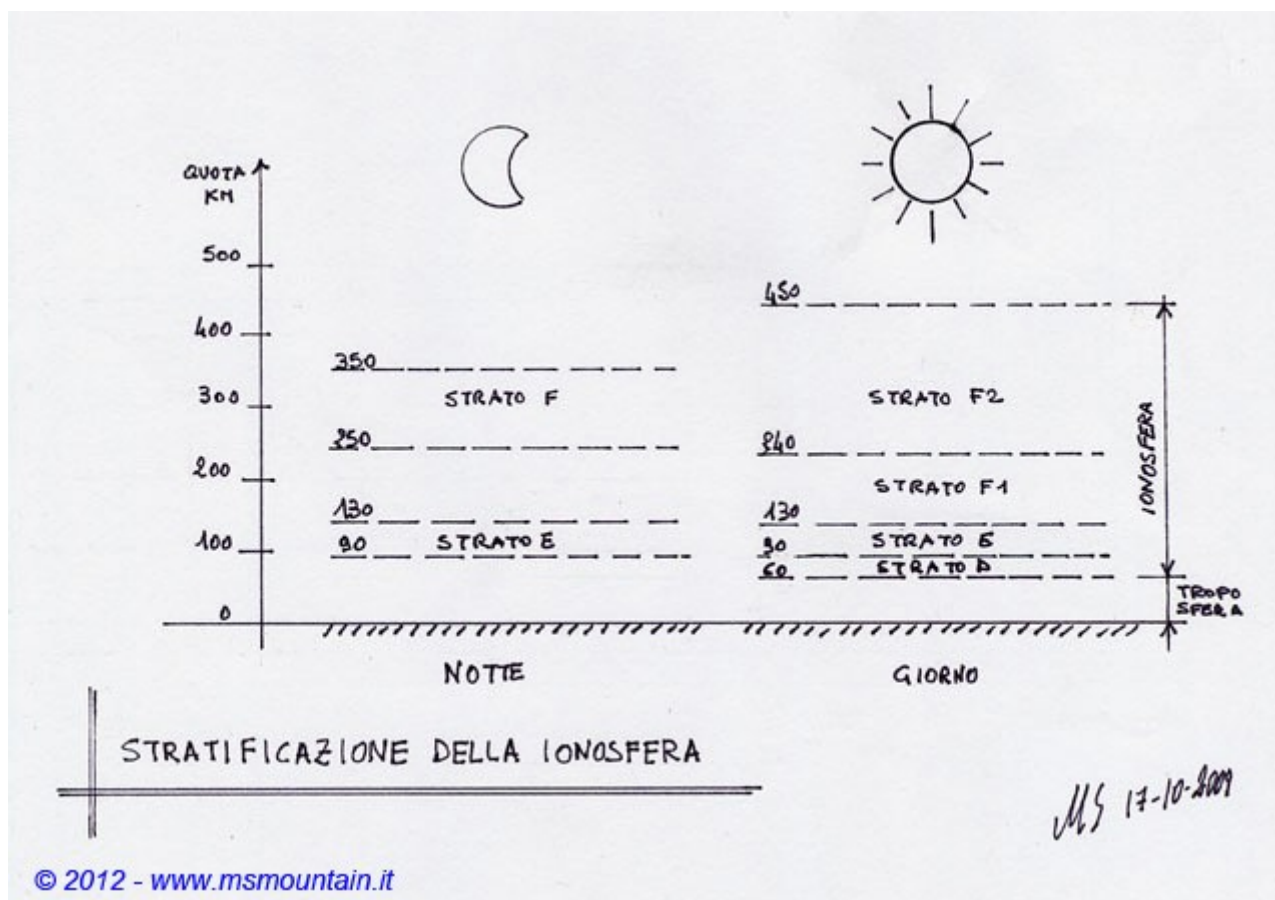 QUOTA
KM
500
400
300
200
100
0
350
STRATO F
250
130
90
STRATO E
NOTTE
450
STRATO F2
240
STRATO F1
130
STRATO E
90
STRATO D
60
GIORNO
IONOSFERA
TROPO
SFERA
STRATIFICAZIONE DELLA IONOSFERA
MS 17-10-2009
© 2012 - www.msmountain.it